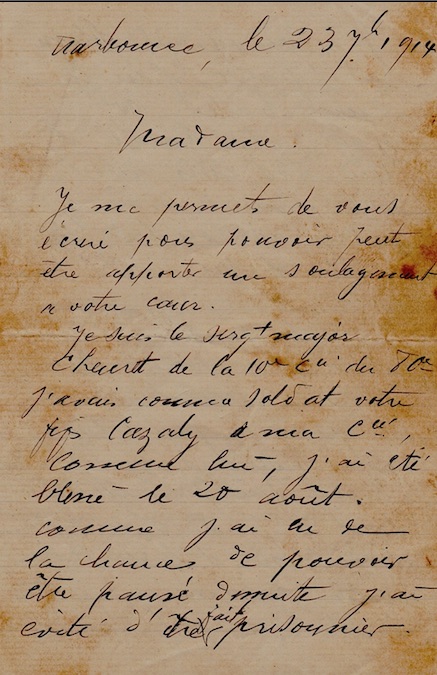 Narbonne, le 23 7bre 1914
Madame.
Je me permets de vous
écrire pour pouvoir peut
être apporter un soulagement
a votre cœur.
Je suis le sergt major
de la 10e Cie du 80e
j'avais comme soldat votre
fils Cazaly a ma Cie,
Comme lui, j'ai été
blessé le 20 août.
comme j'ai eu de
la chance de pouvoir
être pansé j'ai
évité d'être fait prisonnier.